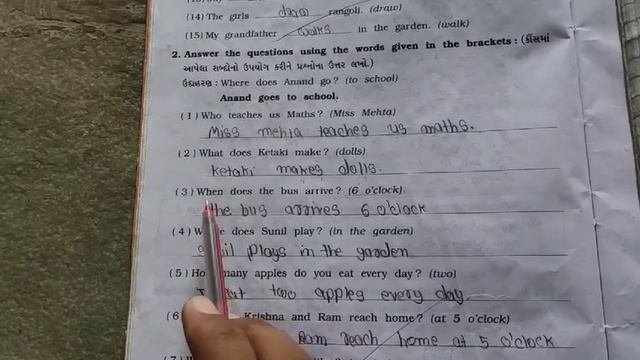 (14) The girls draw rangoli. (draw)
(15) My grandfather walks in the garden. (walk)
2. Answer the questions using the words given in the brackets : (કૌંસમાં
આપેલા શબ્દોનો ઉપયોગ કરીને પ્રશ્નોના ઉત્તર લખો.)
ઉદાહરણ : Where does Anand go? (to school)
Anand goes to school.
(1) Who teaches us Maths? (Miss Mehta)
Miss mehta teaches us maths.
(2) What does Ketaki make? (dolls)
Ketaki makes dolls.
(3) When does the bus arrive? (6 o'clock)
the bus arrives 6 o'clock
(4) does Sunil play? (in the garden)
Sunil plays in the garden
(5) many apples do you eat every day? (two)
two apples every day.
(6 Krishna and Ram reach home? (at 5 o'clock)
Ram reach home at 5 o'clock